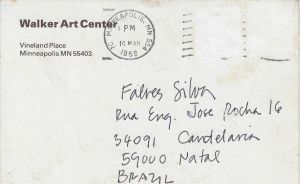 Walker Art Center
Vineland Place
Minneapolis MN 55403
MINNEAPOLIS, MN 554
PM
10 MAR
1988
Falves Silva
Rua Eng. Jose Rocha 16
34091 Candelaria
59000 Natal
BRAZIL